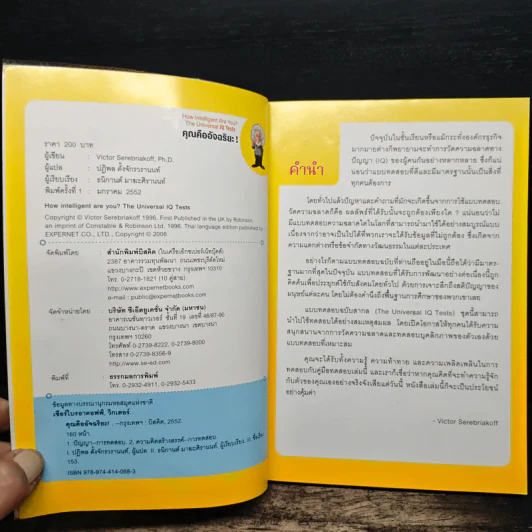 How Intelligent Are You?
The Universal IQ Tests
คุณคืออัจฉริยะ!
ราคา 200 บาท
ผู้เขียน : Victor Serebriakoff, Ph.D.
ผู้แปล : ปฏิพล ตั้งจักรวรานนท์
ผู้เรียบเรียง : ธนิกานต์ มาฆะศิรานนท์
พิมพ์ครั้งที่ 1 : มกราคม 2552
How intelligent are you? The Universal IQ Tests
Copyright © Victor Serebriakoff 1996. First Published in the UK by Robinson,
an imprint of Constable & Robinson Ltd, 1996. Thai language edition published by
EXPERNET CO., LTD., Copyright © 2008
จัดพิมพ์โดย : สำนักพิมพ์บิสคิต (ในเครือเอ็กซเปอร์เน็ทบุ๊คส์)
2387 อาคารรวมทุนพัฒนา ถนนเพชรบุรีตัดใหม่
แขวงบางกะปิ เขตห้วยขวาง กรุงเทพฯ 10310
โทร. 0-2718-1821 (10 คู่สาย)
http://www.expernetbooks.com
e-mail : public@expernetbooks.com
จัดจำหน่ายโดย : บริษัท ซีเอ็ดยูเคชั่น จำกัด (มหาชน)
อาคารเนชั่นทาวเวอร์ ชั้นที่ 19 เลขที่ 46/87-90
ถนนบางนา-ตราด แขวงบางนา เขตบางนา
กรุงเทพฯ 10260
โทรศัพท์ 0-2739-8222, 0-2739-8000
โทรสาร 0-2739-8356-9
http://www.se-ed.com
พิมพ์ที่ : ธรรกมลการพิมพ์
โทร. 0-2932-4911, 0-2932-5433
ข้อมูลทางบรรณานุกรมหอสมุดแห่งชาติ
เซียร์ไบรอาคอฟฟ์, วิกเตอร์.
คุณคืออัจฉริยะ! . –กรุงเทพฯ : บิสคิต, 2552.
160 หน้า.
1. ปัญญา--การทดสอบ. 2. ความคิดสร้างสรรค์--การทดสอบ.
I. ปฏิพล ตั้งจักรวรานนท์, ผู้แปล. II. ธนิกานต์ มาฆะศิรานนท์, ผู้เรียบเรียง. III. ชื่อเรื่อง.
153.
ISBN 978-974-414-068-3
คำนำ
ปัจจุบันในชั้นเรียนหรือแม้กระทั่งองค์กรธุรกิจ
มากมายต่างก็พยายามจะทำการวัดความฉลาดทาง
ปัญญา (IQ) ของผู้คนกันอย่างหลากหลาย ซึ่งก็แน่
นอนว่าแบบทดสอบที่ดีและมีมาตรฐานนั้นเป็นสิ่งที่
ทุกคนต้องการ
โดยทั่วไปแล้วปัญหาและคำถามที่มักจะเกิดขึ้นจากการใช้แบบทดสอบ
วัดความฉลาดก็คือ ผลลัพธ์ที่ได้รับนั้นจะถูกต้องเพียงใด ? แน่นอนว่าไม่
มีแบบทดสอบความฉลาดใดในโลกที่สามารถนำมาใช้ได้อย่างสมบูรณ์แบบ
เนื่องจากว่าอาจเป็นไปได้ที่พวกเราจะได้รับข้อมูลที่ไม่ถูกต้อง ซึ่งเกิดจาก
ความแตกต่างหรือข้อจำกัดทางวัฒนธรรมในแต่ละประเทศ
อย่างไรก็ตามแบบทดสอบฉบับที่ท่านถืออยู่ในมือนี้ถือได้ว่ามีมาตร
ฐานมากที่สุดในปัจจุบัน แบบทดสอบที่ได้รับการพัฒนาอย่างต่อเนื่องนี้ถูก
คิดค้นเพื่อประยุกต์ใช้กับสังคมโดยทั่วไป ด้วยการเจาะลึกถึงสติปัญญาของ
มนุษย์แต่ละคน โดยไม่ต้องคำนึงถึงพื้นฐานการศึกษาของพวกเขาเลย
แบบทดสอบฉบับสากล (The Universal IQ Tests) ชุดนี้สามารถ
นำไปใช้ทดสอบได้อย่างสมเหตุสมผล โดยเปิดโอกาสให้ทุกคนได้รับความ
สนุกสนานจากการวัดความฉลาดและทดสอบบุคลิกภาพของตัวเองด้วย
แบบทดสอบที่เหมาะสม
คุณจะได้รับทั้งความรู้ ความท้าทาย และความเพลิดเพลินในการ
ทดสอบกับคู่มือทดสอบเล่มนี้ และเราก็เชื่อว่าหากคุณคิดที่จะทำความรู้จัก
กับตัวของคุณเองอย่างจริงจังเสียแต่วันนี้ หนังสือเล่มนี้ก็จะเป็นประโยชน์
อย่างคุ้มค่า
- Victor Serebriakoff